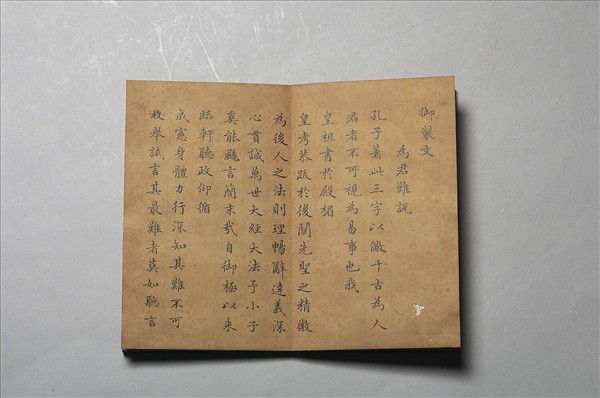 御製文
為君難說
孔子著此三字以儆千古為人
君者不可視為易事也我
皇祖書於殿楣
皇考恭跋於後闡先聖之精微
為後人之法則理暢辭達義深
心貫誠萬世大經大法予小子
奚能颺言簡末哉自御極以來
臨軒聽政仰循
成憲身體力行深知其難不可
枚舉試言其最難者莫如聽言